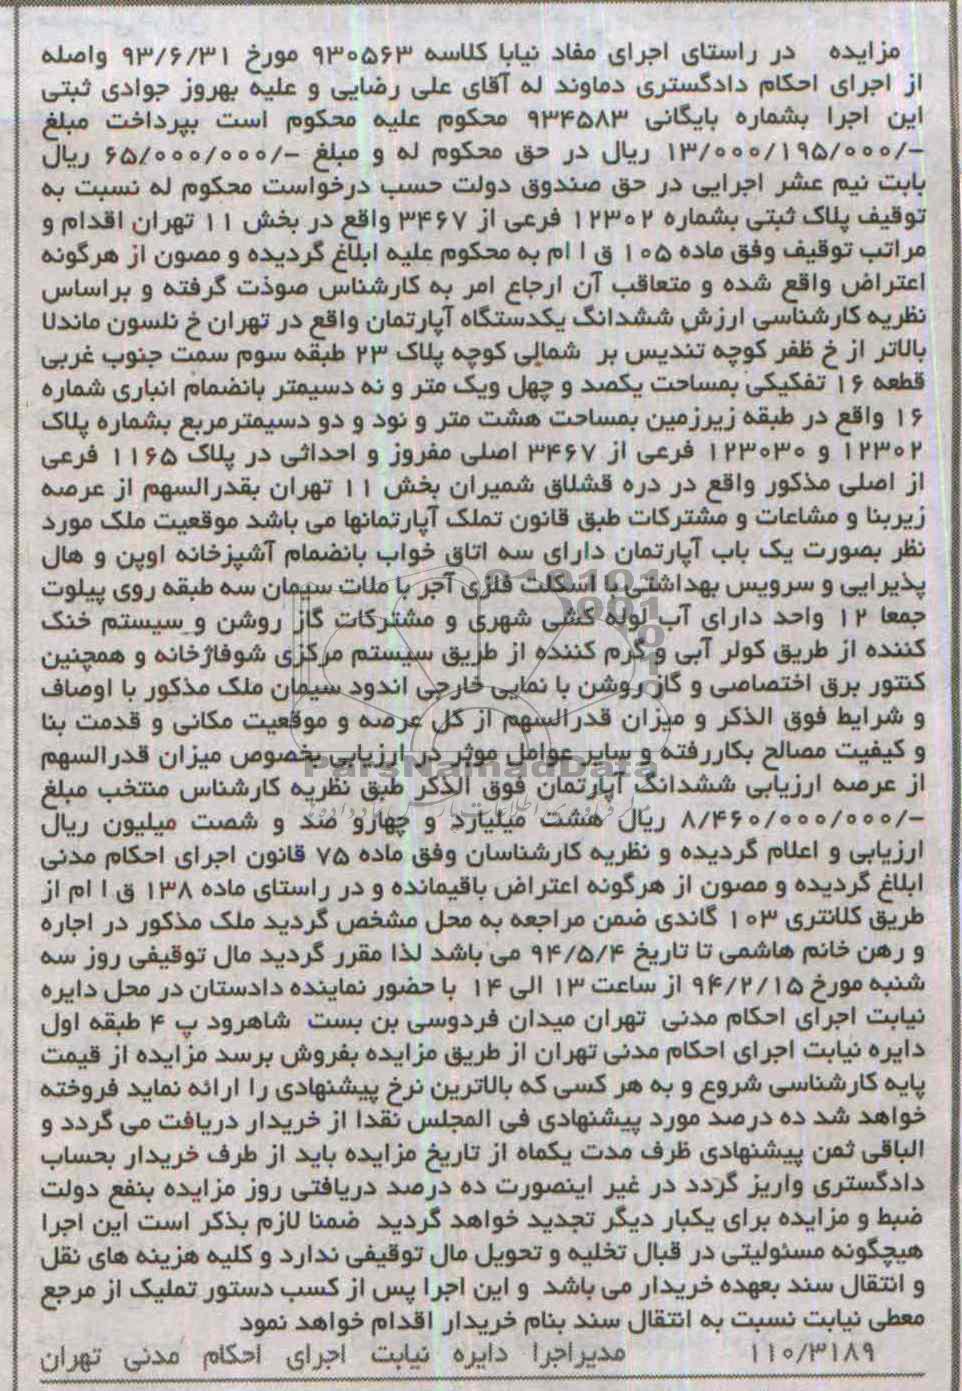 مزایده در راستای اجرای مفاد نیابا کلاسه ۹۳۰۵۶۳ مورخ ۹۳/۶/۳۱ واصله
از اجرای احکام دادگستری دماوند له آقای علی رضایی و علیه بهروز جوادی ثبتی
این اجرا بشماره بایگانی ۹۳۴۵۸۳ محکوم علیه محکوم است بپرداخت مبلغ
-/۱۳/۰۰۰/۱۹۵/۰۰۰ ریال در حق محکوم له و مبلغ -/۶۵/۰۰۰/۰۰۰ ریال
بابت نیم عشر اجرایی در حق صندوق دولت حسب درخواست محکوم له نسبت به
توقیف پلاک ثبتی بشماره ۱۲۳۰۲ فرعی از ۳۴۶۷ واقع در بخش ۱۱ تهران اقدام و
مراتب توقیف وفق ماده ۱۰۵ ق ا ام به محکوم علیه ابلاغ گردیده و مصون از هرگونه
اعتراض واقع شده و متعاقب آن ارجاع امر به کارشناس صوذت گرفته و براساس
نظریه کارشناسی ارزش ششدانگ یکدستگاه آپارتمان واقع در تهران خ نلسون ماندلا
بالاتر از خ ظفر کوچه تندیس بر شمالی کوچه پلاک ۲۳ طبقه سوم سمت جنوب غربی
قطعه ۱۶ تفکیکی بمساحت یکصد و چهل ویک متر و نه دسیمتر بانضمام انباری شماره
۱۶ واقع در طبقه زیرزمین بمساحت هشت متر و نود و دو دسیمترمربع بشماره پلاک
۱۲۳۰۲ و ۱۲۳۰۳۰ فرعی از ۳۴۶۷ اصلی مفروز و احداثی در پلاک ۱۱۶۵ فرعی
از اصلی مذکور واقع در دره قشلاق شمیران بخش ۱۱ تهران بقدرالسهم از عرصه
زیربنا و مشاعات و مشترکات طبق قانون تملک آپارتمانها می باشد موقعیت ملک مورد
نظر بصورت یک باب آپارتمان دارای سه اتاق خواب بانضمام آشپزخانه اوپن و هال
پذیرایی و سرویس بهداشتی با اسکلت فلزی آجر با ملات سیمان سه طبقه روی پیلوت
جمعا ۱۲ واحد دارای آب لوله کشی شهری و مشترکات گاز روشن و سیستم خنک
کننده از طریق کولر آبی و گرم کننده از طریق سیستم مرکزی شوفاژخانه و همچنین
کنتور برق اختصاصی و گاز روشن با نمایی خارجی اندود سیمان ملک مذکور با اوصاف
و شرایط فوق الذکر و میزان قدرالسهم از کل عرصه و موقعیت مکانی و قدمت بنا
و کیفیت مصالح بکاررفته و سایر عوامل موثر در ارزیابی بخصوص میزان قدرالسهم
ParsNamadData
از عرصه ارزیابی ششدانگ آپارتمان فوق الذکر طبق نظریه کارشناس منتخب مبلغ
-/۸/۴۶۰/۰۰۰/۰۰۰ ریال هشت میلیارد و چهارو صد و شصت میلیون ریال
ارزیابی و اعلام گردیده و نظریه کارشناسان وفق ماده ۷۵ قانون اجرای احکام مدنی
ابلاغ گردیده و مصون از هرگونه اعتراض باقیمانده و در راستای ماده ۱۳۸ ق ا ام از
طریق کلانتری ۱۰۳ گاندی ضمن مراجعه به محل مشخص گردید ملک مذکور در اجاره
و رهن خانم هاشمی تا تاریخ ۹۴/۵/۴ می باشد لذا مقرر گردید مال توقیفی روز سه
شنبه مورخ ۹۴/۲/۱۵ از ساعت ۱۳ الی ۱۴ با حضور نماینده دادستان در محل دایره
نیابت اجرای احکام مدنی تهران میدان فردوسی بن بست شاهرود پ ۴ طبقه اول
دایره نیابت اجرای احکام مدنی تهران از طریق مزایده بفروش برسد مزایده از قیمت
پایه کارشناسی شروع و به هر کسی که بالاترین نرخ پیشنهادی را ارائه نماید فروخته
خواهد شد ده درصد مورد پیشنهادی فی المجلس نقدا از خریدار دریافت می گردد و
الباقی ثمن پیشنهادی ظرف مدت یکماه از تاریخ مزایده باید از طرف خریدار بحساب
دادگستری واریز گردد در غیر اینصورت ده درصد دریافتی روز مزایده بنفع دولت
ضبط و مزایده برای یکبار دیگر تجدید خواهد گردید ضمنا لازم بذکر است این اجرا
هیچگونه مسئولیتی در قبال تخلیه و تحویل مال توقیفی ندارد و کلیه هزینه های نقل
و انتقال سند بعهده خریدار می باشد و این اجرا پس از کسب دستور تملیک از مرجع
معطی نیابت نسبت به انتقال سند بنام خریدار اقدام خواهد نمود
۱۱۰/۳۱۸۹ مدیراجرا دایره نیابت اجرای احکام مدنی تهران